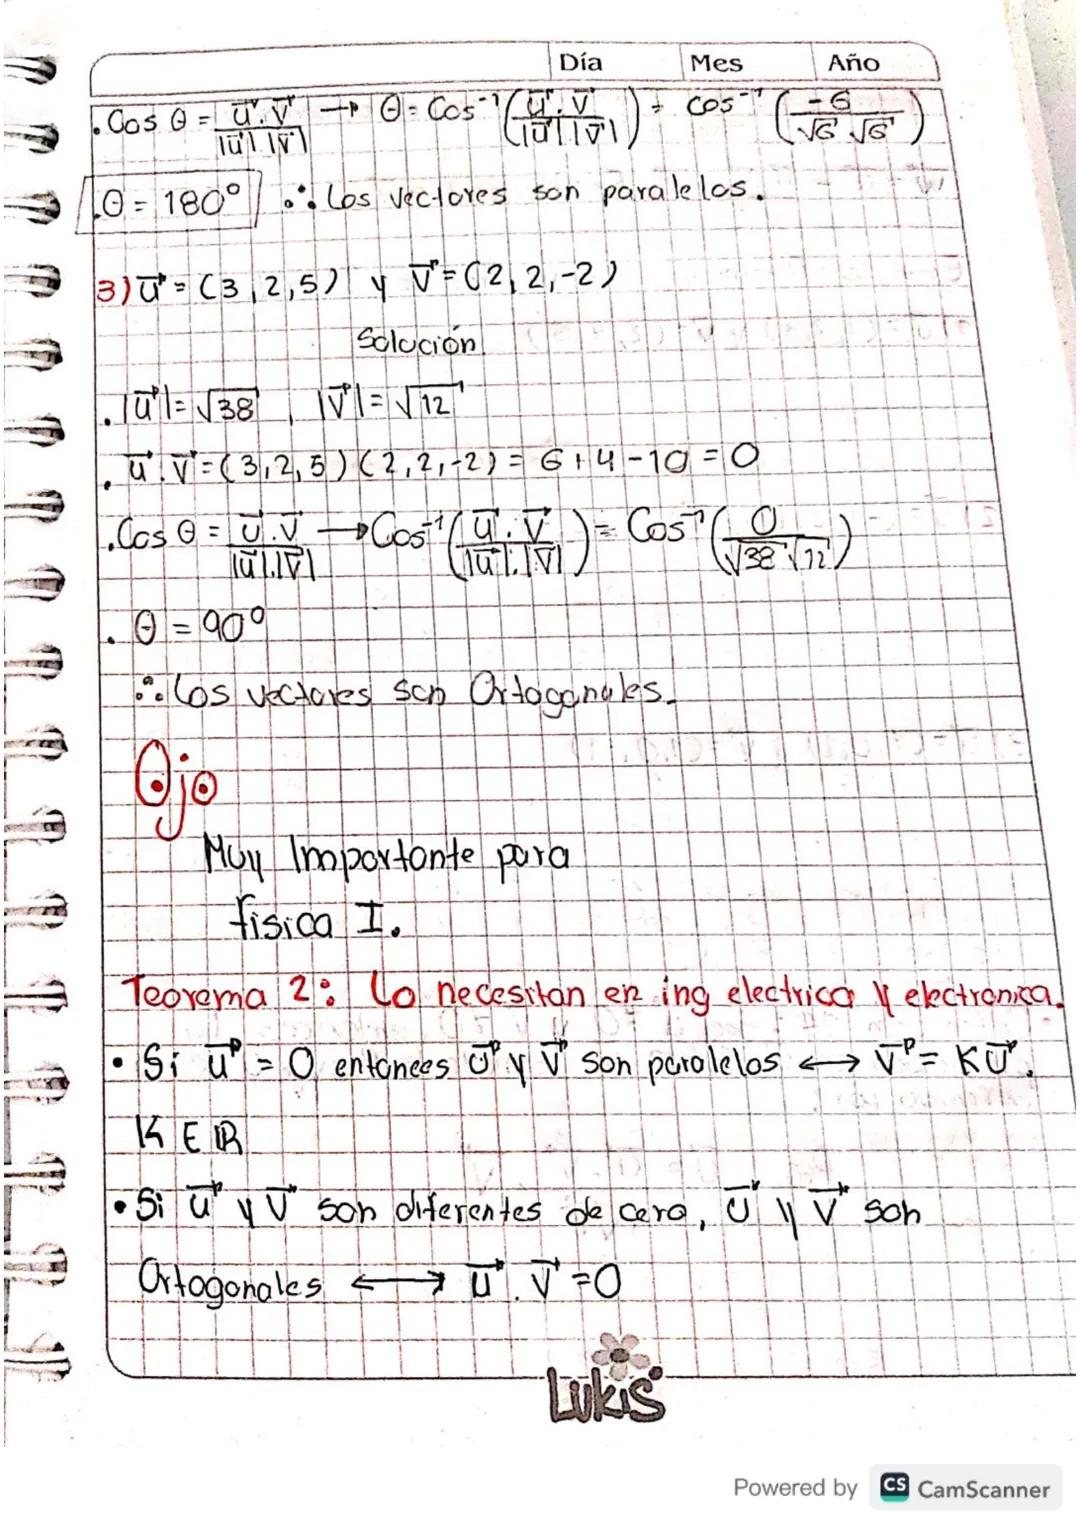 Día Mes Año
. Cos θ = u⃗.v⃗ / |u⃗| |v⃗| → θ = Cos⁻¹ (u⃗.v⃗ / |u⃗| |v⃗|) = cos⁻¹ (-6 / √6 √6)
.θ = 180° ∴ Los vectores son paralelos.
3) u⃗ = (3, 2, 5) y v⃗ = (2, 2, -2)
Solución
. |u⃗| = √38 , |v⃗| = √12
. u⃗.v⃗ = (3, 2, 5) (2, 2, -2) = 6 + 4 - 10 = 0
. Cos θ = u⃗.v⃗ / |u⃗|.|v⃗| → Cos⁻¹ (u⃗.v⃗ / |u⃗|.|v⃗|) = Cos⁻¹ (0 / √38 √12)
. θ = 90°
∴ Los vectores son Ortogonales.
Ojo
Muy Importante para
física I.
Teorema 2: Lo necesitan en ing electrica y electronica.
• Si u⃗ = 0 entonces u⃗ y v⃗ son paralelos ↔ v⃗ = Ku⃗.
K ∈ ℝ
• Si u⃗ y v⃗ son diferentes de cero, u⃗ y v⃗ son
Ortogonales ↔ u⃗.v⃗ = 0
Lukis
Powered by CS CamScanner